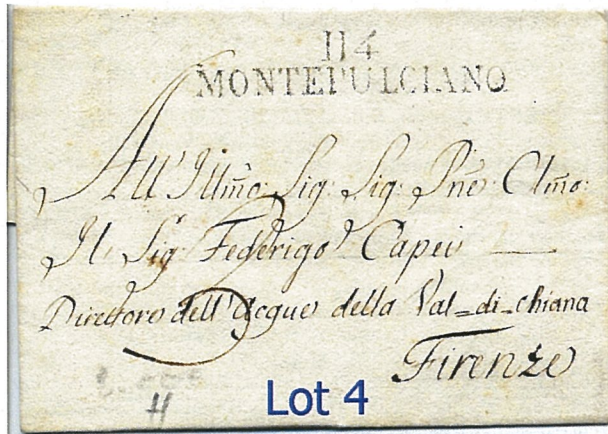 114
MONTEPULCIANO
All' Illmo. Sig: Sig: Pñe: Clmo:
Il Sig Federigo Capei
Direttore dell'Acque della Val=di=chiana
Firenze
Lot 4